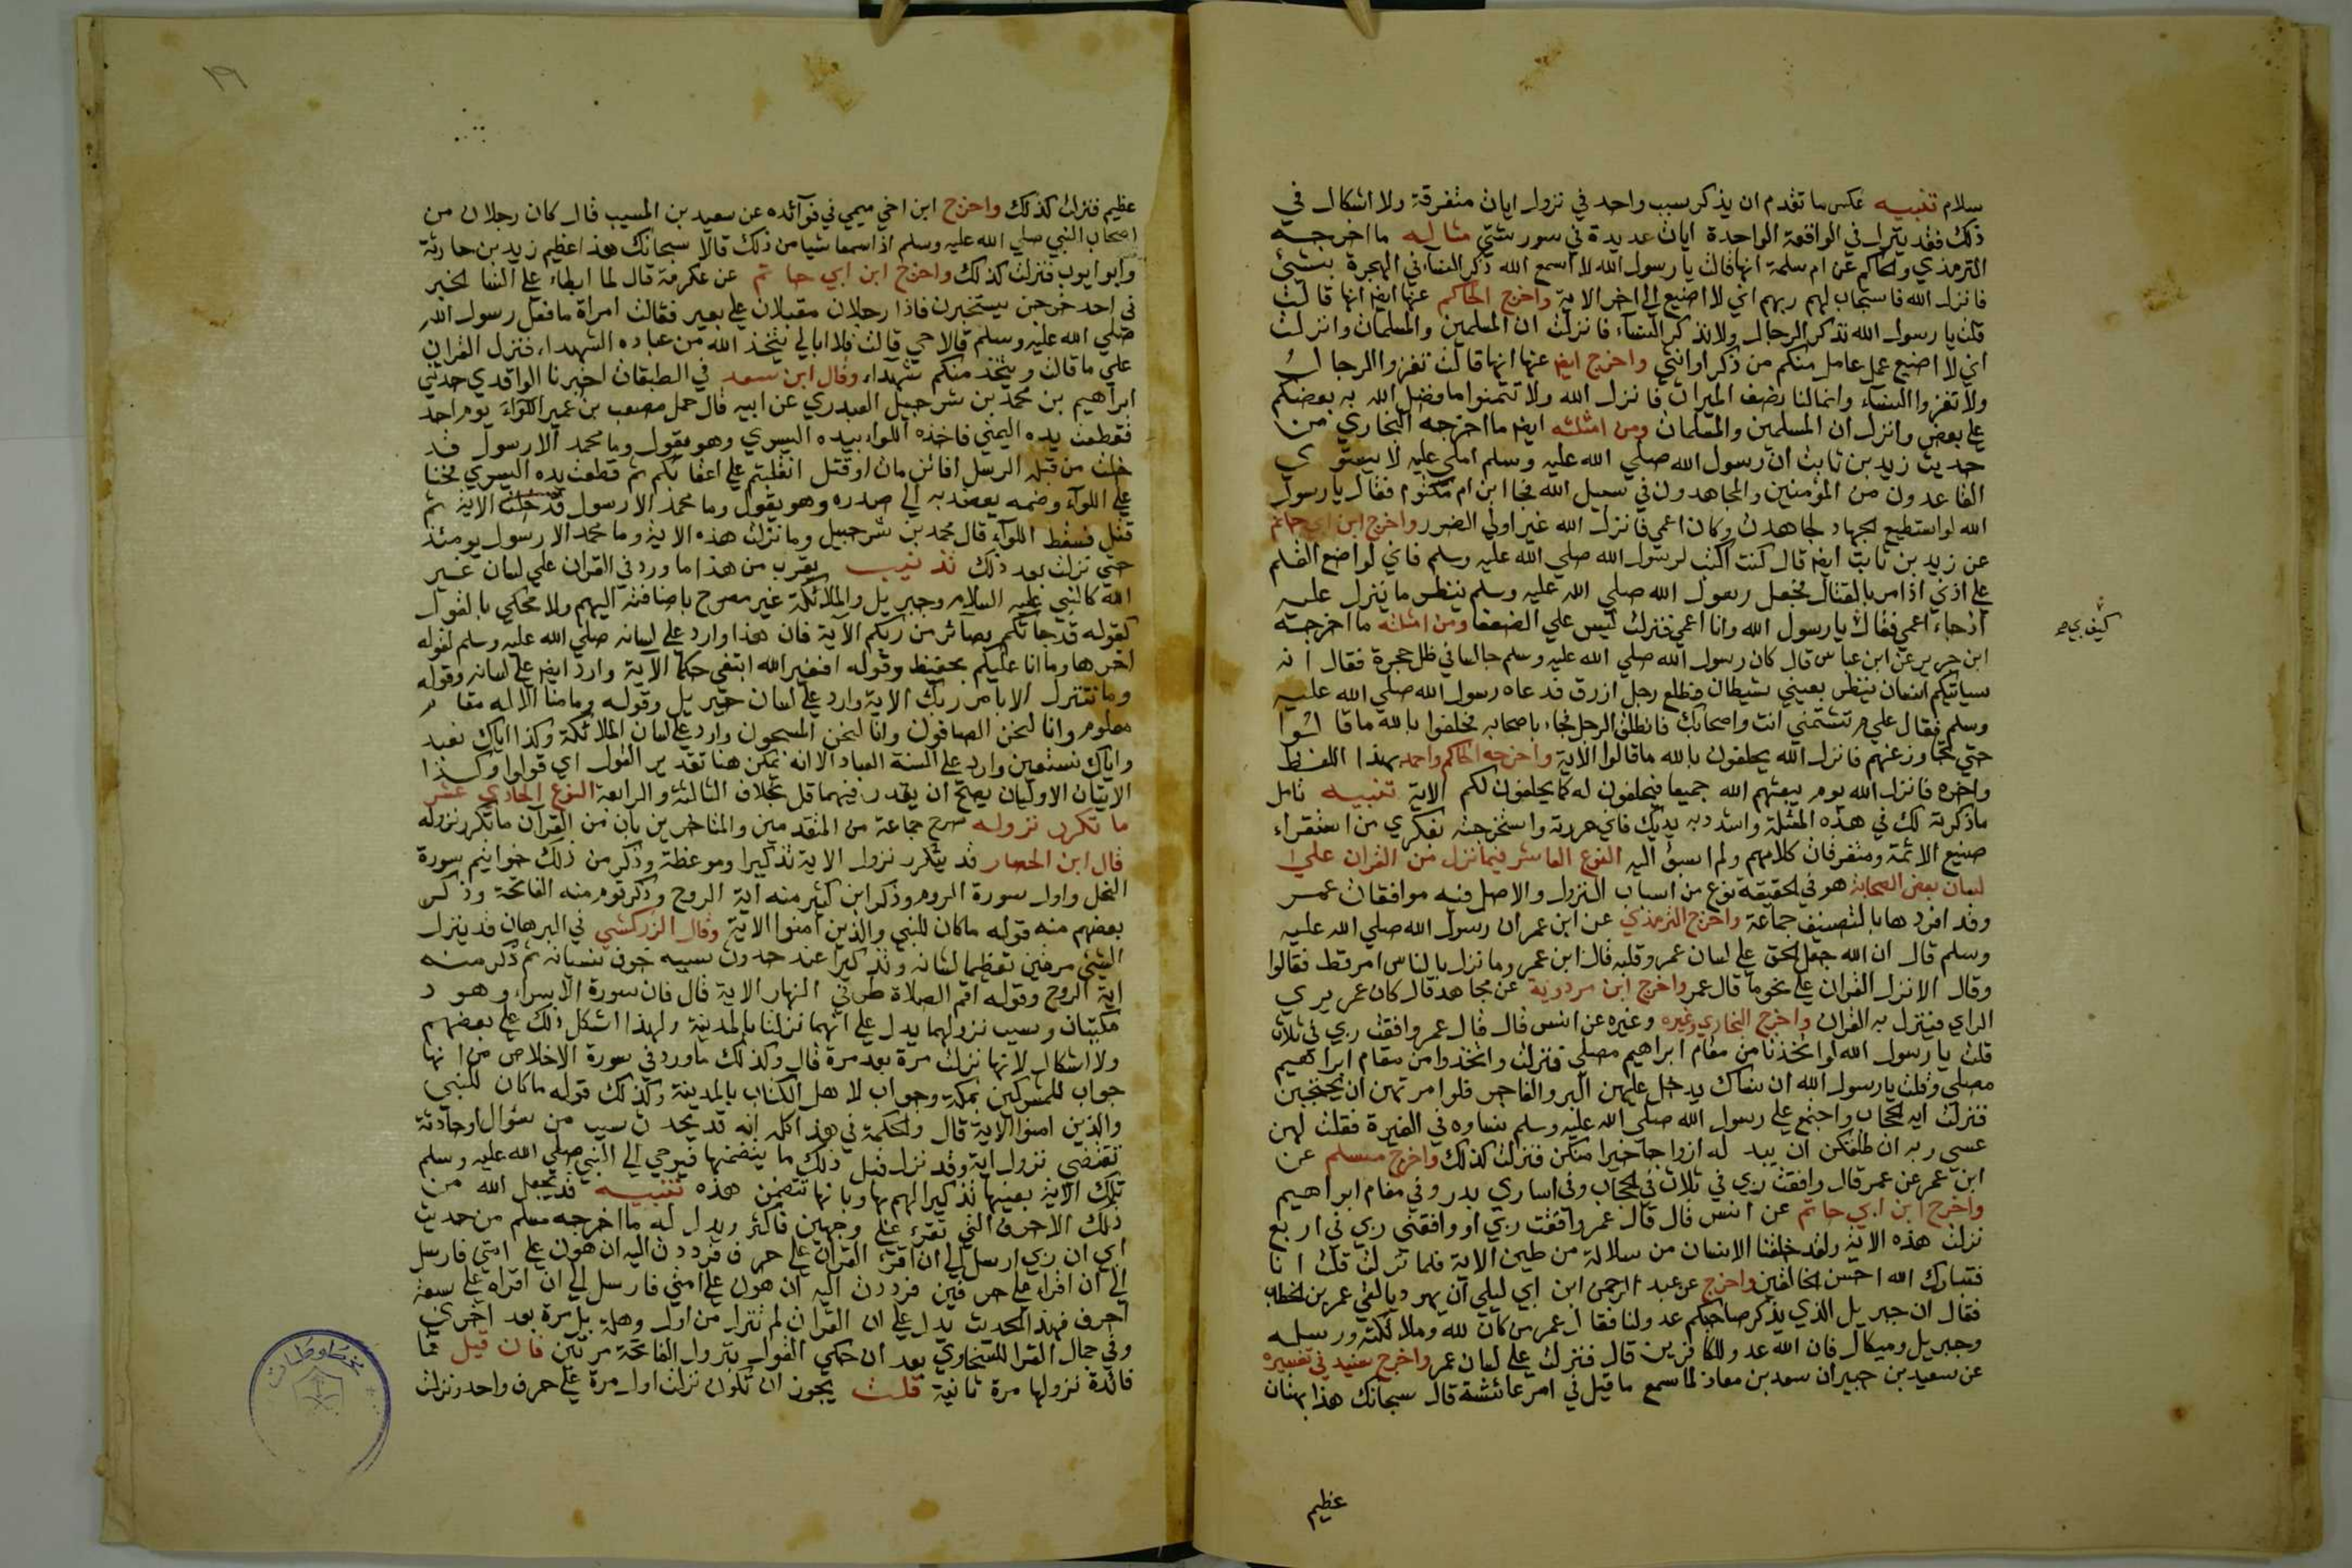 سلام تنبيه عكس ما تقدم ان يذكر سبب واحد في نزول ايات متفرقة ولا اشكال في
ذلك فقد ينزل في الواقعة الواحدة ايات عديدة في سور شتي مثاله ما اخرجه
الترمذي والحاكم عن ام سلمة انها قالت يا رسول الله لا اسمع الله ذكر النساء في الهجرة بشئ
فانزل الله فاستجاب لهم ربهم اني لا اضيع الي اخر الاية واخرج الحاكم عنها ايضا انها قالت
قلت يا رسول الله تذكر الرجال ولا تذكر النساء فانزلت ان المسلمين والمسلمات وانزلت
اني لا اضيع عمل عامل منكم من ذكر او انثي واخرج ايضا عنها انها قالت تغزوا الرجال
ولا تغزوا النساء وانما لنا نصف الميراث فانزل الله ولا تتمنوا ما فضل الله به بعضكم
علي بعض وانزل ان المسلمين والمسلمات ومن امثلته ايضا ما اخرجه البخاري من
حديث زيد بن ثابت ان رسول الله صلي الله عليه وسلم املي عليه لا يستوي
القاعدون من المؤمنين والمجاهدون في سبيل الله فجا ابن ام مكتوم فقال يا رسول
الله لو استطيع الجهاد لجاهدت وكان اعمي فانزل الله غير اولي الضرر واخرج ابن ابي حاتم
عن زيد بن ثابت ايضا قال كنت اكتب لرسول الله صلي الله عليه وسلم فاني لواضع القلم
علي اذني اذ امر بالقتال فجعل رسول الله صلي الله عليه وسلم ينظر ما ينزل عليه
اذ جاء اعمي فقال يا رسول الله وانا اعمي فنزلت ليس علي الضعفا ومن امثلته ما اخرجه
كيف بي صح
ابن جرير عن ابن عباس قال كان رسول الله صلي الله عليه وسلم جالسا في ظل حجرة فقال انه
سياتيكم انسان ينظر بعيني شيطان فطلع رجل ازرق فدعاه رسول الله صلي الله عليه
وسلم فقال علي م تشتمني انت واصحابك فانطلق الرجل فجاء باصحابه فحلفوا بالله ما قالوا
حتي تجاوز عنهم فانزل الله يحلفون بالله ما قالوا الاية واخرجه الحاكم واحمد بهذا اللفظ
واخره فانزل الله يوم يبعثهم الله جميعا فيحلفون له كما يحلفون لكم الاية تنبيه تامل
ما ذكرته لك في هذه المثلة واشدد به يديك فاني حررته واستخرجته بفكري من استقراء
صنيع الائمة ومتفرقات كلامهم ولم اسبق اليه النوع العاشر فيما نزل من القران علي
لسان بعض الصحابة هو في الحقيقة نوع من اسباب النزول والاصل فيه موافقات عمر
وقد افردها بالتصنيف جماعة واخرج الترمذي عن ابن عمر ان رسول الله صلي الله عليه
وسلم قال ان الله جعل الحق علي لسان عمر وقلبه قال ابن عمر وما نزل بالناس امر قط فقالوا
وقال الا نزل القران علي نحو ما قال عمر واخرج ابن مردوية عن مجاهد قال كان عمر يري
الراي فينزل به القران واخرج البخاري وغيره وغيره عن انس قال قال عمر وافقت ربي في ثلاث
قلت يا رسول الله لو اتخذنا من مقام ابراهيم مصلي فنزلت واتخذوا من مقام ابراهيم
مصلي وقلت يا رسول الله ان نساك يدخل عليهن البر والفاجر فلو امرتهن ان يحتجبن
فنزلت اية الحجاب واجتمع علي رسول الله صلي الله عليه وسلم نساوه في الغيرة فقلت لهن
عسي ربه ان طلقكن ان يبدله ازواجا خيرا منكن فنزلت كذلك واخرج مسلم عن
ابن عمر عن عمر قال وافقت ربي في ثلاث في الحجاب وفي اساري بدر وفي مقام ابراهيم
واخرج ابن ابي حاتم عن انس قال قال عمر وافقت ربي او وافقني ربي في اربع
نزلت هذه الاية ولقد خلقنا الانسان من سلالة من طين الاية فلما نزلت قلت انا
فتبارك الله احسن الخالقين واخرج عن عبد الرحمن ابن ابي ليلي ان يهوديا لقي عمر بن الخطاب
فقال ان جبريل الذي يذكر صاحبكم عدو لنا فقال عمر من كان لله وملائكته ورسله
وجبريل وميكال فان الله عدو للكافرين قال فنزلت علي لسان عمر واخرج سنيد في تفسيره
عن سعيد بن جبير ان سعد بن معاذ لما سمع ما قيل في امر عائشة قال سبحانك هذا بهتان
عظيم
١٩
عظيم فنزلت كذلك واخرج ابن اخي ميمي في فوائده عن سعيد بن المسيب قال كان رجلان من
اصحاب النبي صلي الله عليه وسلم اذا سمعا شيا من ذلك قالا سبحانك هذا عظيم زيد بن حارثة
وابو ايوب فنزلت كذلك واخرج ابن ابي حاتم عن عكرمة قال لما ابطاء علي النسا الخبر
في احد خرجن يستخبرن فاذا رجلان مقبلان علي بعير فقالت امراة ما فعل رسول الله
صلي الله عليه وسلم قالا حي قالت فلا ابالي يتخذ الله من عباده الشهداء فنزل القران
علي ما قالت ويتخذ منكم شهداء وقال ابن سعد في الطبقات اخبرنا الواقدي حدثني
ابراهيم بن محمد بن شرحبيل العبدري عن ابيه قال حمل مصعب بن عمير اللواء يوم احد
فقطعت يده اليمني فاخذه اللواء بيده اليسري وهو يقول وما محمد الا رسول قد
خلت من قبله الرسل افائن مات او قتل انقلبتم علي اعقابكم ثم قطعت يده اليسري فحنا
علي اللواء وضمه بعضديه الي صدره وهو يقول وما محمد الا رسول قد خلت الاية ثم
قتل فسقط اللواء قال محمد بن شرحبيل وما نزلت هذه الاية وما محمد الا رسول يومئذ
حتي نزلت بعد ذلك تذنيب يقرب من هذا ما ورد في القران علي لسان غير
الله كالنبي عليه السلام وجبريل والملائكة غير مصرح باضافته اليهم ولا محكي بالقول
كقوله قد جاءكم بصائر من ربكم الاية فان هذا وارد علي لسانه صلي الله عليه وسلم لقوله
اخرها وما انا عليكم بحفيظ وقوله افغير الله ابتغي حكما الاية وارد ايضا علي لسانه وقوله
وما نتنزل الا بامر ربك الاية وارد علي لسان جبريل وقوله وما منا الا له مقام
معلوم وانا لنحن الصافون وانا لنحن المسبحون وارد علي لسان الملائكة وكذا اياك نعبد
واياك نستعين وارد علي السنة العباد الا انه يمكن هنا تقدير القول اي قولوا وكذا
الايتان الاوليان يصح ان يقدر فيهما قل بخلاف الثالثة والرابعة النوع الحادي عشر
ما تكرر نزوله صرح جماعة من المتقدمين والمتاخرين بان من القران ما تكرر نزوله
قال ابن الحصار قد يتكرر نزول الاية تذكيرا وموعظة وذكر من ذلك خواتيم سورة
النحل واول سورة الروم وذكر ابن كثير منه اية الروح وذكر قوم منه الفاتحة وذكر
بعضهم منه قوله ما كان للنبي والذين امنوا الاية وقال الزركشي في البرهان قد ينزل
الشئ مرتين تعظيما لشانه وتذكيرا عند حدوث سببه خوف نسيانه ثم ذكر منه
اية الروح وقوله اقم الصلاة طرفي النهار الاية قال فان سورة الاسراء وهود
مكيتان وسبب نزولهما يدل علي انهما نزلتا بالمدينة ولهذا اشكل ذلك علي بعضهم
ولا اشكال لانها نزلت مرة بعد مرة قال وكذلك ما ورد في سورة الاخلاص من انها
جواب للمشركين بمكة وجواب لاهل الكتاب بالمدينة وكذلك قوله ما كان للنبي
والذين امنوا الاية قال والحكمة في هذا كله انه قد يحدث سبب من سؤال او حادثة
تقتضي نزول اية وقد نزل قبل ذلك ما يتضمنها فيوحي الي النبي صلي الله عليه وسلم
تلك الاية بعينها تذكيرا لهم بها وبانها تتضمن هذه تنبيه قد يجعل الله من
ذلك الاحرف التي تقرء علي وجهين فاكثر ويدل له ما اخرجه مسلم من حديث
ابي ان ربي ارسل الي ان اقرء القران علي حرف فرددت اليه ان هون علي امتي فارسل
الي ان اقراء علي حرفين فرددت اليه ان هون علي امتي فارسل الي ان اقراه علي سبعة
احرف فهذا الحديث يدل علي ان القران لم تنزل من اول وهلة بل مرة بعد اخري
وفي جمال القرا للسخاوي بعد ان حكي القول بنزول الفاتحة مرتين فان قيل فما
فائدة نزولها مرة ثانية قلت يجوز ان تكون نزلت اول مرة علي حرف واحد ونزلت
مخطوطات